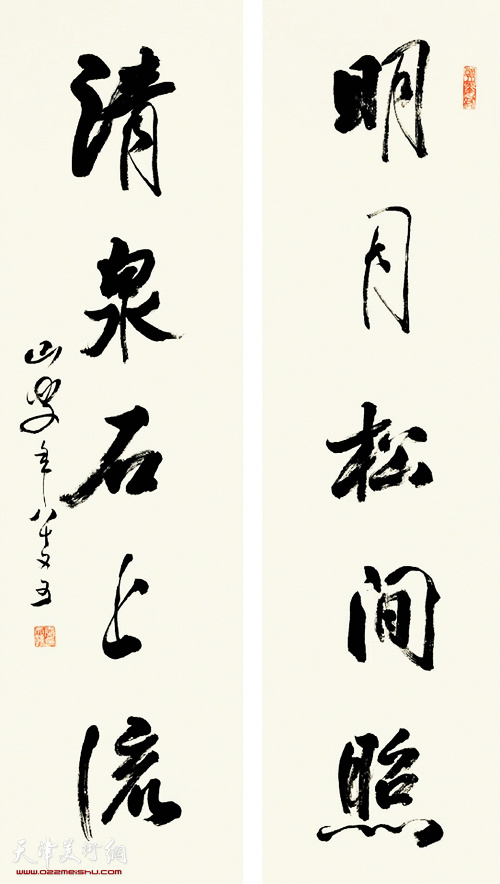 明月松间照
清泉石上流
山叟年八十又五
天津美术网
www.022meishu.com